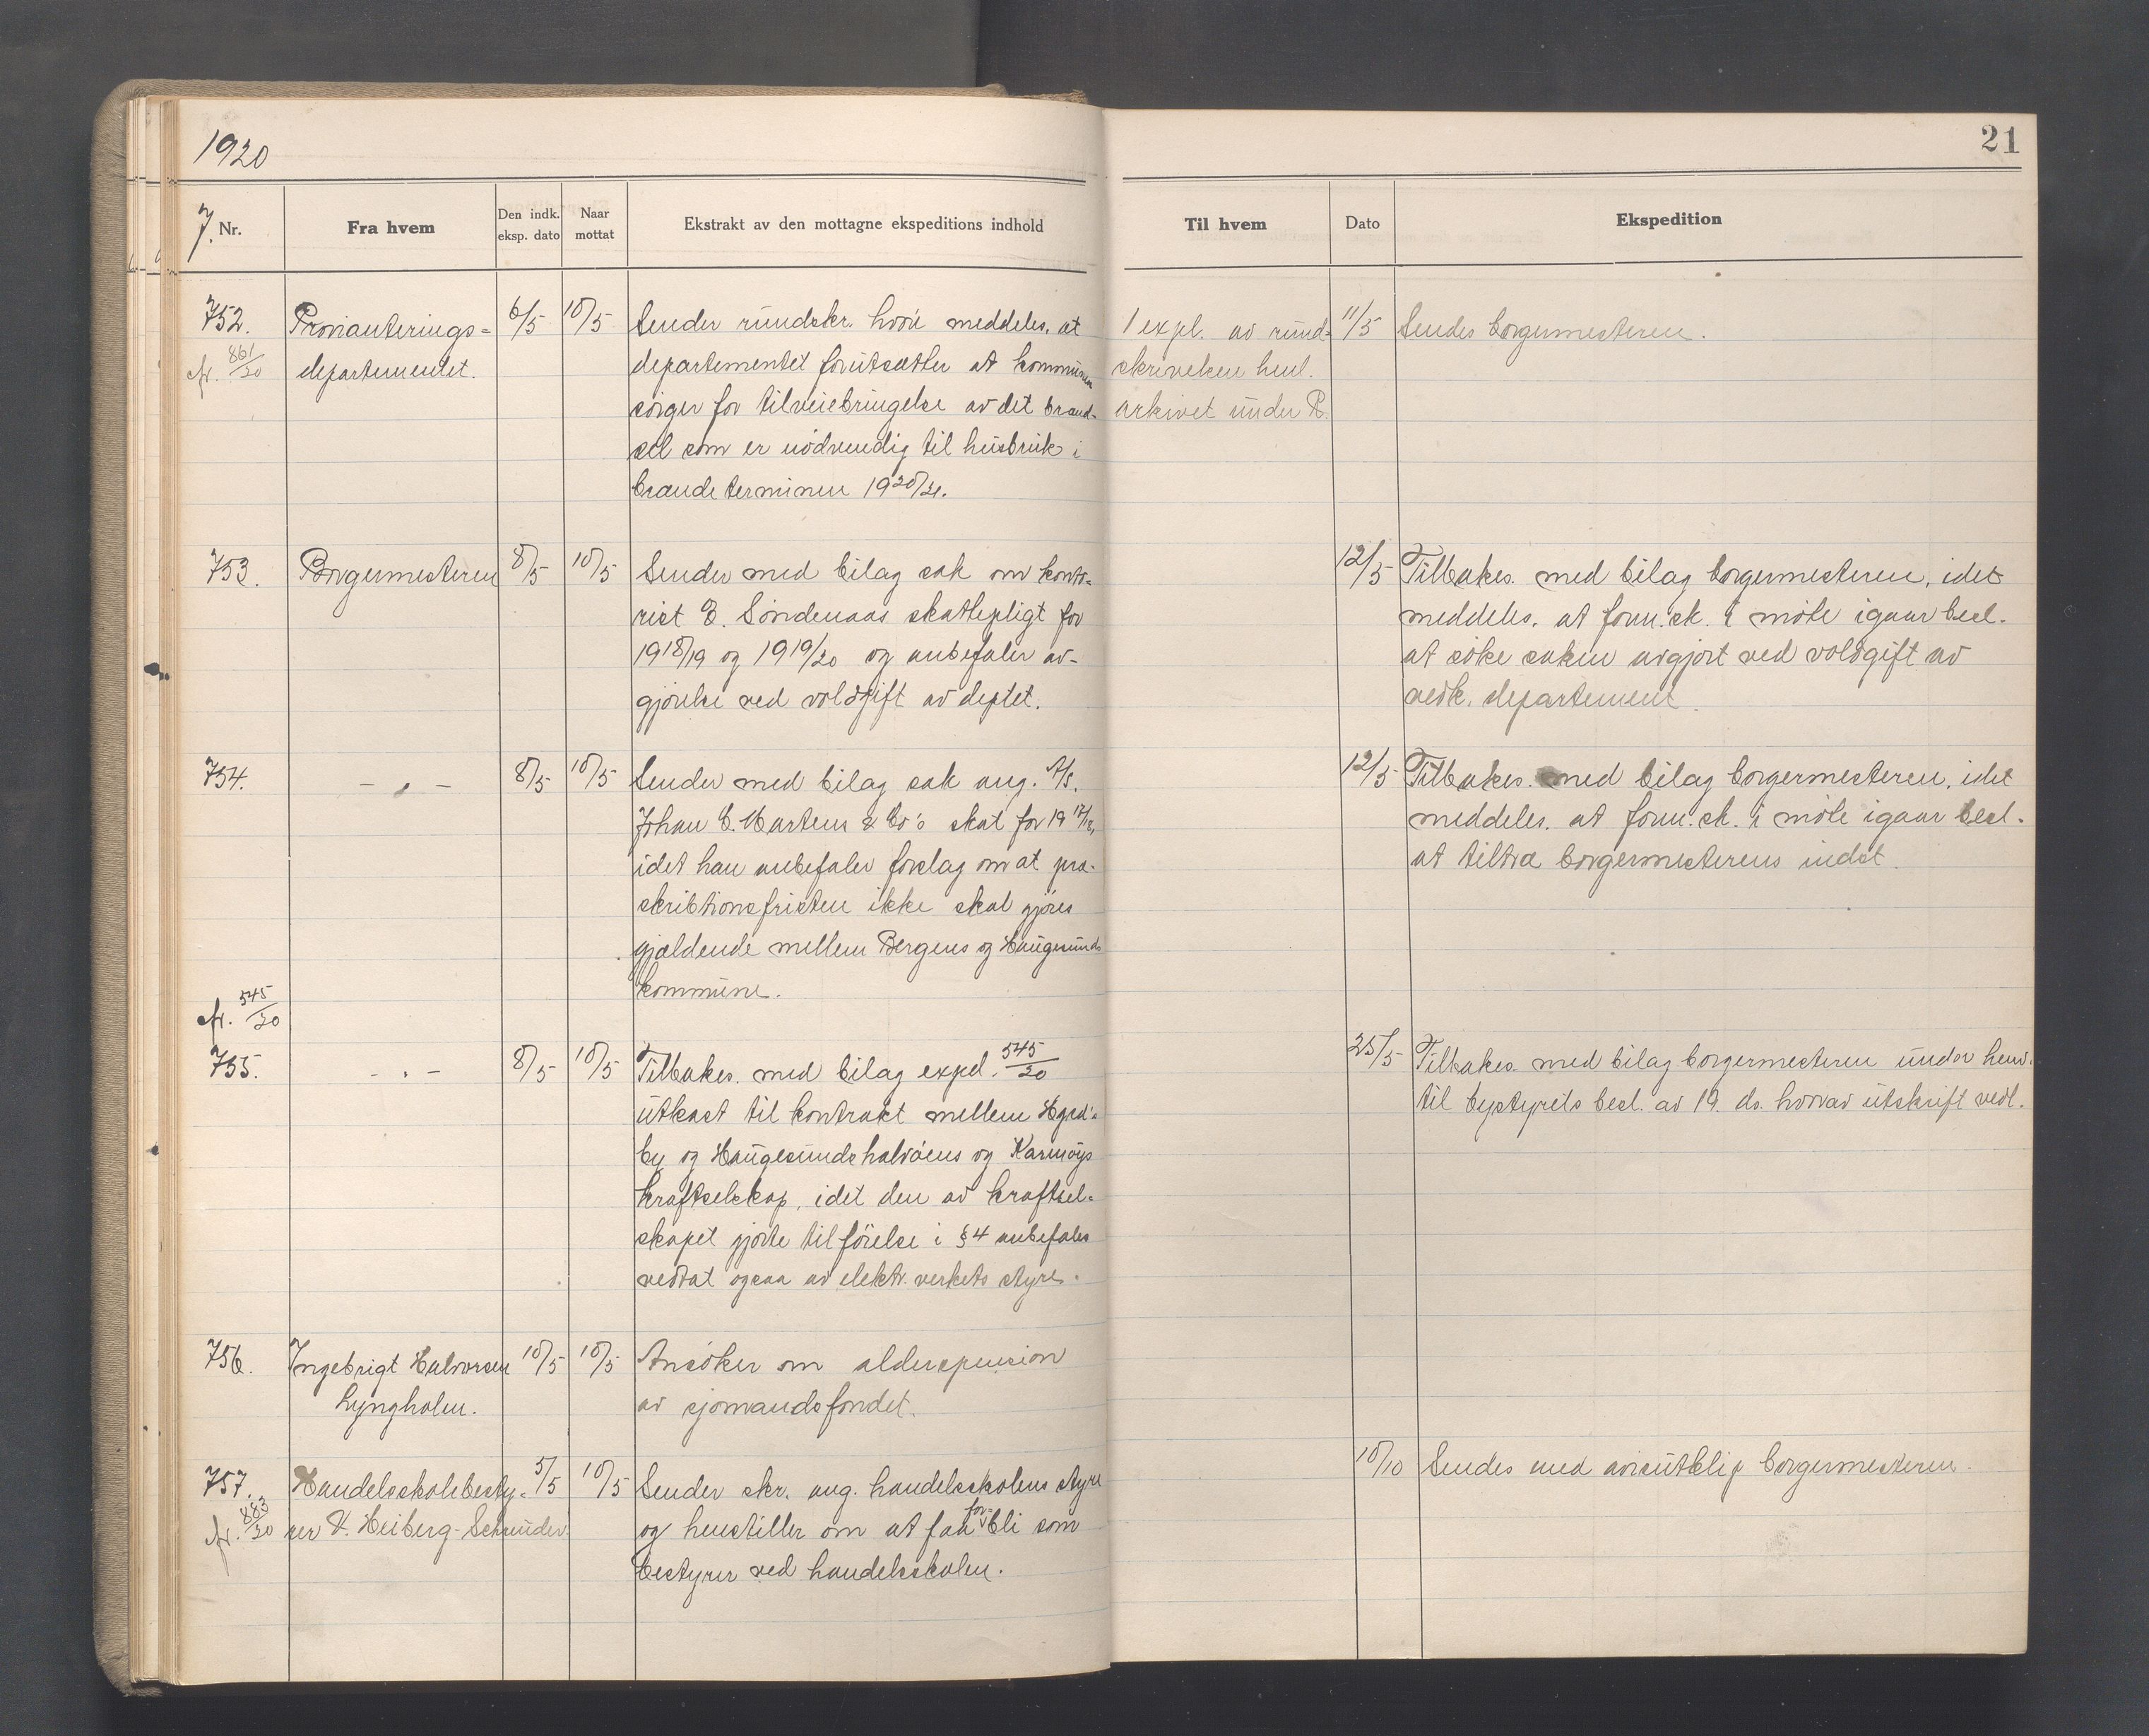 1920
21
J. Nr.
Fra hvem
Den indk. eksp. dato
Naar mottat
Ekstrakt av den mottagne ekspeditions indhold
Til hvem
Dato
Ekspedition
752.
cfr. 861/20
Provianterings-
departementet.
6/5
10/5
Sender rundskr. hvori meddeles, at
departementet forutsætter at kommunen
sørger for tilveiebringelse av det brænd-
sel som er nødvendig til husbruk i
brændeterminen 1920/21.
1 expl. av rund-
skrivelsen henl.
arkivet under R.
11/5
Sendes borgermesteren.
753.
Borgermesteren
8/5
10/5
Sender med bilag sak om konto-
rist E. Søndenaas skattepligt for
1918/19 og 1919/20 og anbefaler av-
gjørelse ved voldgift av deptet.
12/5
Tilbakes. med bilag borgermesteren, idet
meddeles, at form.sk. i møte igaar besl.
at søke saken avgjort ved voldgift av
vedk. departement.
754.
- „ -
8/5
10/5
Sender med bilag sak ang. A/S.
Johan C. Martens & Co's skat for 1917/18,
idet han anbefaler forslag om at præ-
skribtionsfristen ikke skal gjøres
gjældende mellem Bergens og Haugesunds
kommune.
12/5
Tilbakes. med bilag borgermesteren, idet
meddeles, at form.sk. i møte igaar besl.
at tiltræ borgermesterens indst.
cfr. 545/20
755.
- „ -
8/5
10/5
Tilbakes. med bilag exped. 545/20
utkast til kontrakt mellem Hgsd's
by og Haugesundshalvøens og Karmøys
kraftselskap, idet den av kraftsel-
skapet gjorte tilførelse i §4 anbefales
vedtat ogsaa av elektr. verkets styre.
25/5
Tilbakes. med bilag borgermesteren under henv.
til bystyrets besl. av 19. ds. hvorav utskrift vedl.
756.
Ingebrigt Halvorsen
Lyngholm.
10/5
10/5
Ansøker om alderspension
av sjømandsfondet.
757.
cfr. 883/20
Handelsskolebesty-
rer V. Heiberg-Schrøder
5/5
10/5
Sender skr. ang. handelsskolens styre
og henstiller om at faa forbli som
bestyrer ved handelsskolen.
10/10
Sendes med avisutklip borgermesteren.